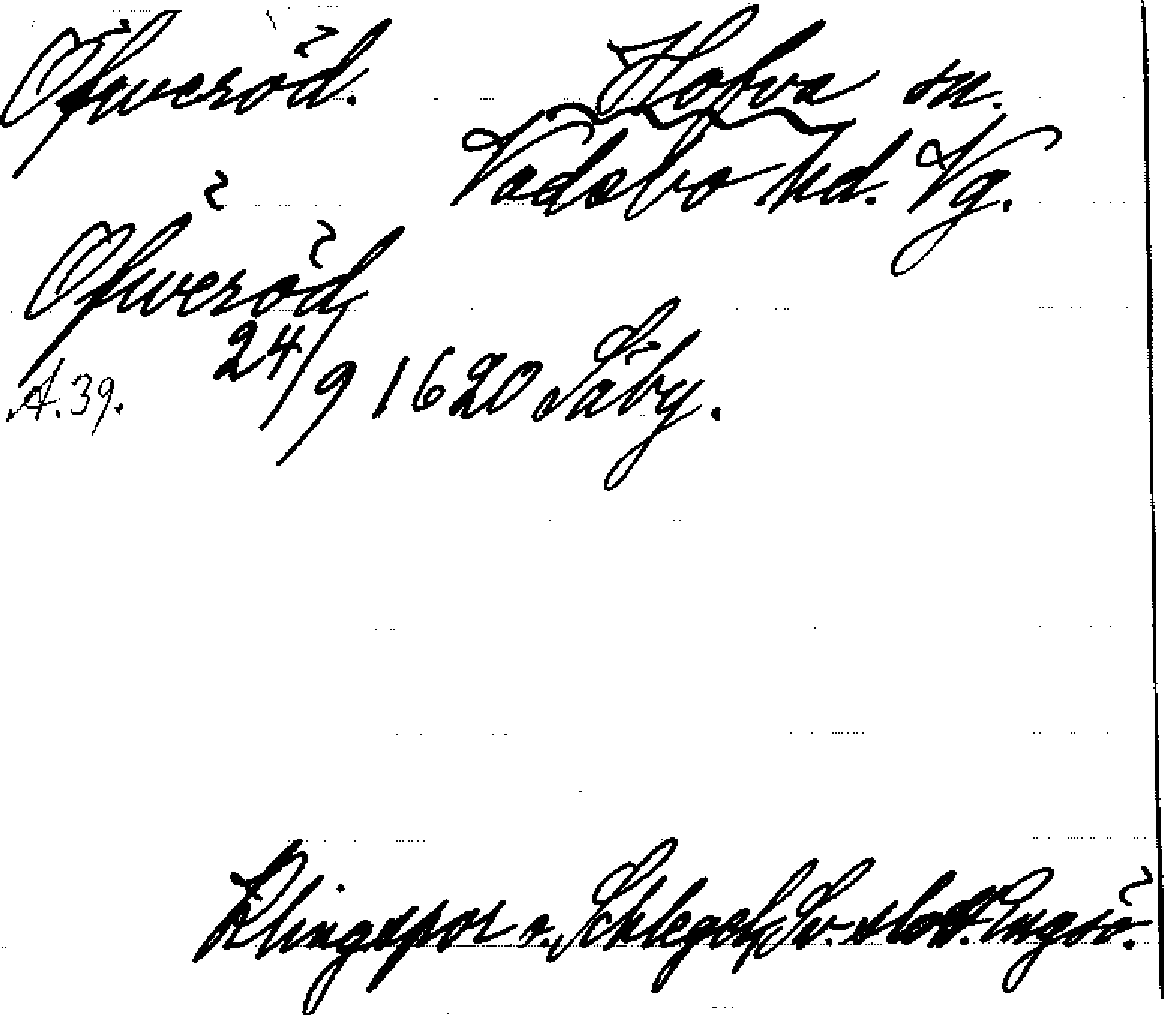 Öfweröd. Hofva sn.
Vadsbo hd. Vg.
Öfweröd
24/9 1620 Säby.
A.39.
Klingspor o. Schlegel, Sv. slott. Engsö.